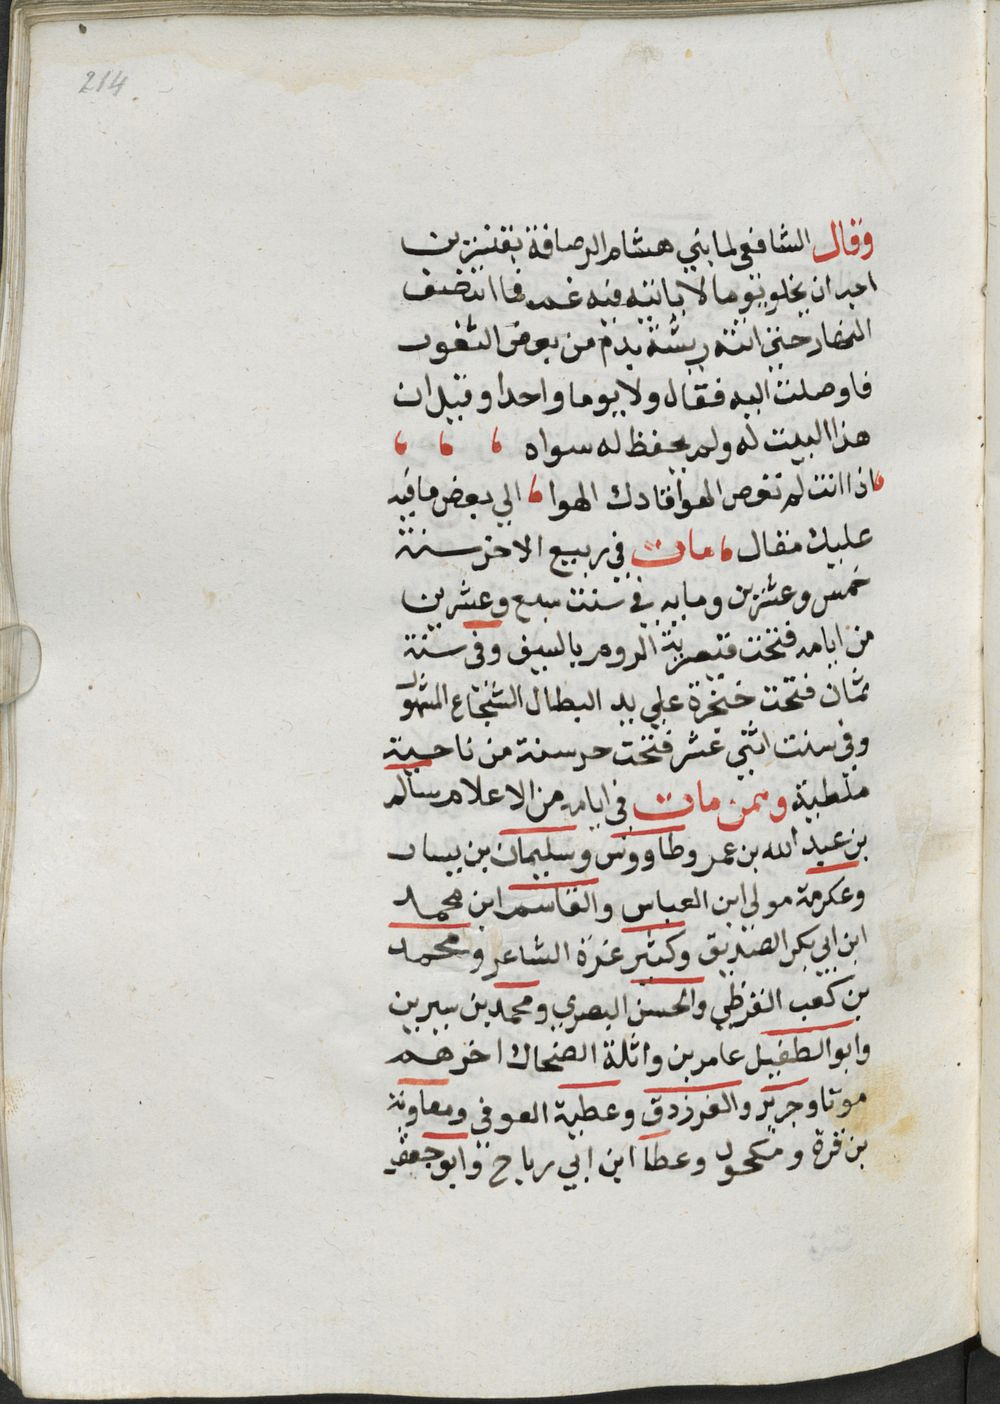 214
وقال الشافعي لما بني هشام الرصافة بقنزين
احب ان يخلو يوما لا ياتيه فيه غم فما انتصف
النهار حتى اتته ريشة بدم من بعض الثغور
فاوصلت اليه فقال ولا يوما واحدا وقيل ان
هذا البيت له ولم يحفظ له سواه
اذا انت لم تعص الهوا قادك الهوا الي بعض ما فيه
عليك مقال مات في ربيع الاخر سنة
خمس وعشرين ومايه في سنت سبع وعشرين
من ايامه فتحت قيصرية الروم بالسيف وفي سنة
ثمان فتحت خنجرة علي يد البطال الشجاع المشهور
وفي سنت اثني عشر فتحت خرسنة من ناحية
ملطية وممن مات في ايامه من الاعلام سالم
بن عبد الله بن عمر وطاووس وسليمان بن يسار
وعكرمة مولى ابن العباس والقاسم ابن محمد
ابن ابي بكر الصديق وكثير عزة الشاعر ومحمد
بن كعب القرظي والحسن البصري ومحمد بن سيرين
وابو الطفيل عامر بن واثلة الضحاك اخرهم
موتا وجرير والفرزدق وعطية العوفي ومعاوية
بن قرة ومكحول وعطا ابن ابي رباح وابو جعفر